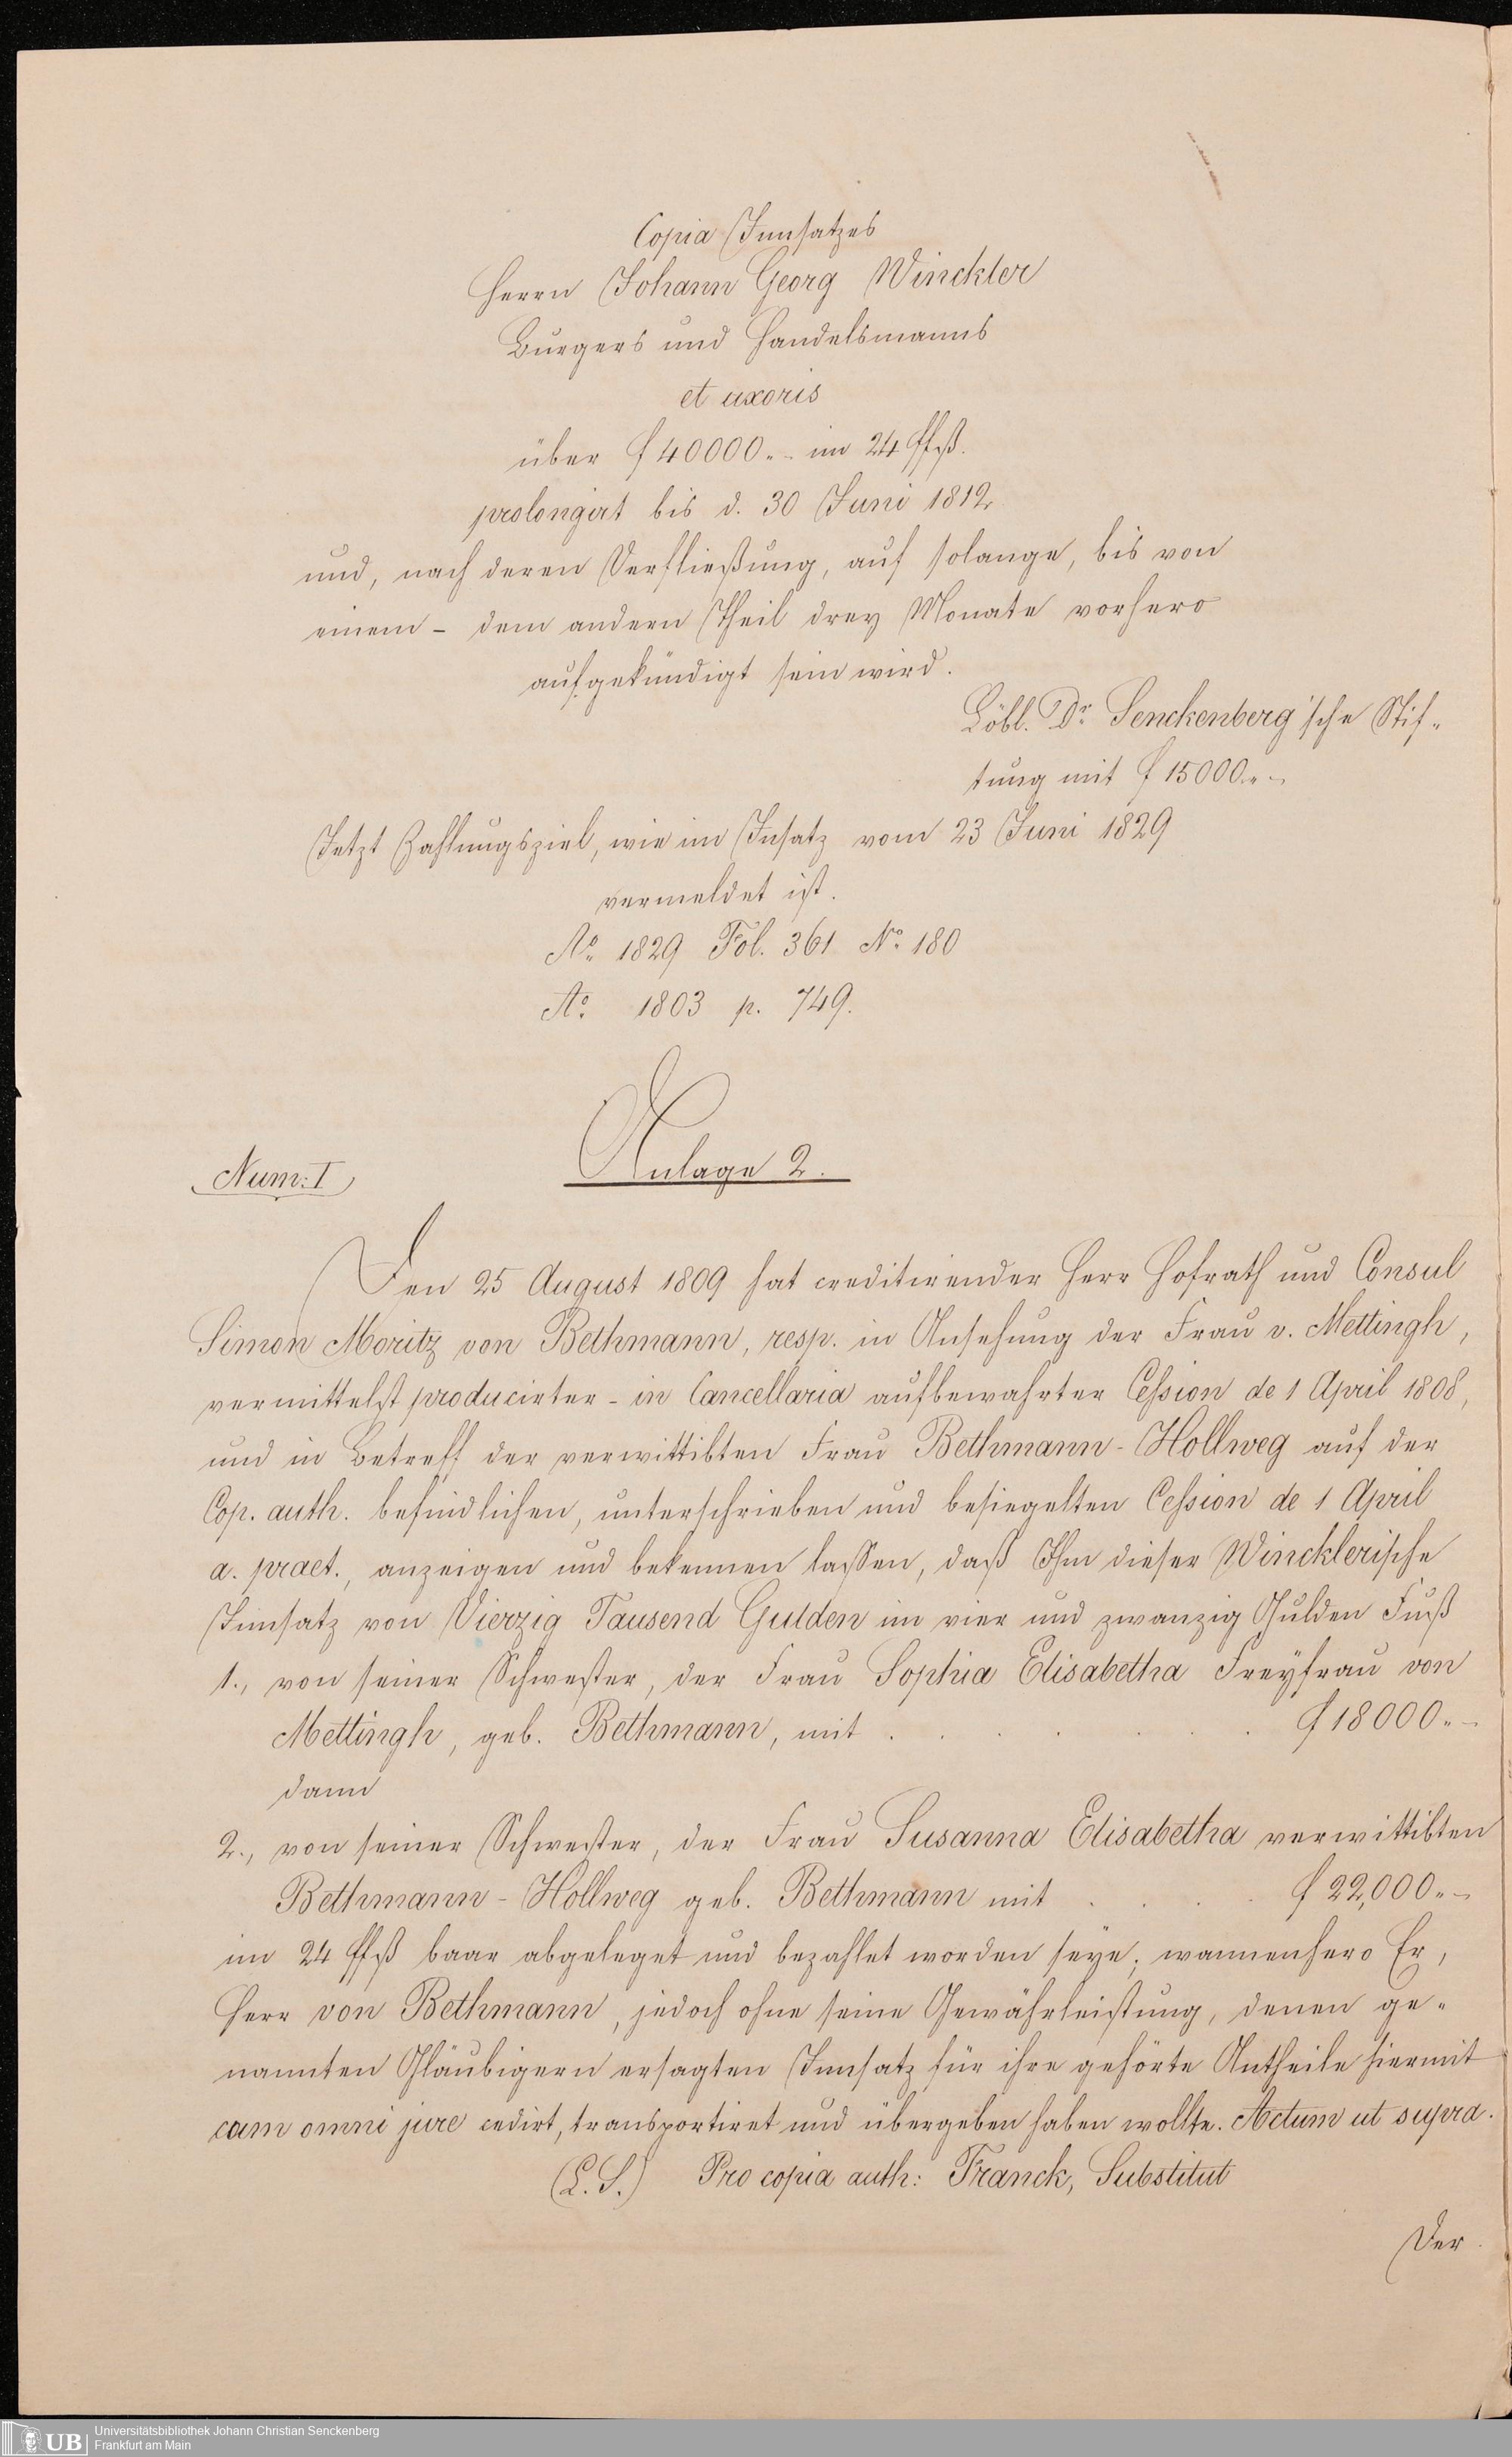 Copia Innsatzes
Herrn Johann Georg Winckler
Burgers und Handelsmanns
et uxoris
über f 40000.- im 24 fl. fß.
prolongirt bis d. 30 Juni 1812
und, nach deren Verfließung, auf solange, bis von
einem - dem andern Theil drey Monate vorhero
aufgekündigt sein wird.
Löbl. Dr. Senckenberg'sche Stif-
tung mit f 15000.-
Jetzt Zahlungsziel, wie im Insatz vom 23 Juni 1829
vermeldet ist.
Ao. 1829 Fol. 361 No. 180
Ao. 1803 p. 749.
Anlage 2.
Num: I
Den 25 August 1809 hat creditirender Herr Hofrath und Consul
Simon Moritz von Bethmann, resp. in Ansehung der Frau v. Mettingh,
vermittelst producirter - in Cancellaria aufbewahrter Cession de 1 April 1808,
und in Betreff der verwittibten Frau Bethmann-Hollweg auf der
Cop. auth. befindlichen, unterschrieben und besiegelten Cession de 1 April
a. praet., anzeigen und bekennen lassen, daß Ihm dieser Wincklerische
Innsatz von Vierzig Tausend Gulden im vier und zwanzig Gulden Fuß
1., von seiner Schwester, der Frau Sophia Elisabetha Freyfrau von
Mettingh, geb. Bethmann, mit . . . . . f 18000.-
dann
2., von seiner Schwester, der Frau Susanna Elisabetha verwittibten
Bethmann-Hollweg geb. Bethmann mit . . . . f 22,000.-
im 24 fl. fß baar abgeleget und bezahlet worden seye; wannenhero Er,
Herr von Bethmann, jedoch ohne seine Gewährleistung, denen ge-
nannten Gläubigern ersagten Innsatz für ihre gehörte Antheile hiermit
cum omni jure cedirt, transportiret und übergeben haben wollte. Actum ut supra.
(L. S.) Pro copia auth: Franck, Substitut
Der
UB
Universitätsbibliothek Johann Christian Senckenberg
Frankfurt am Main